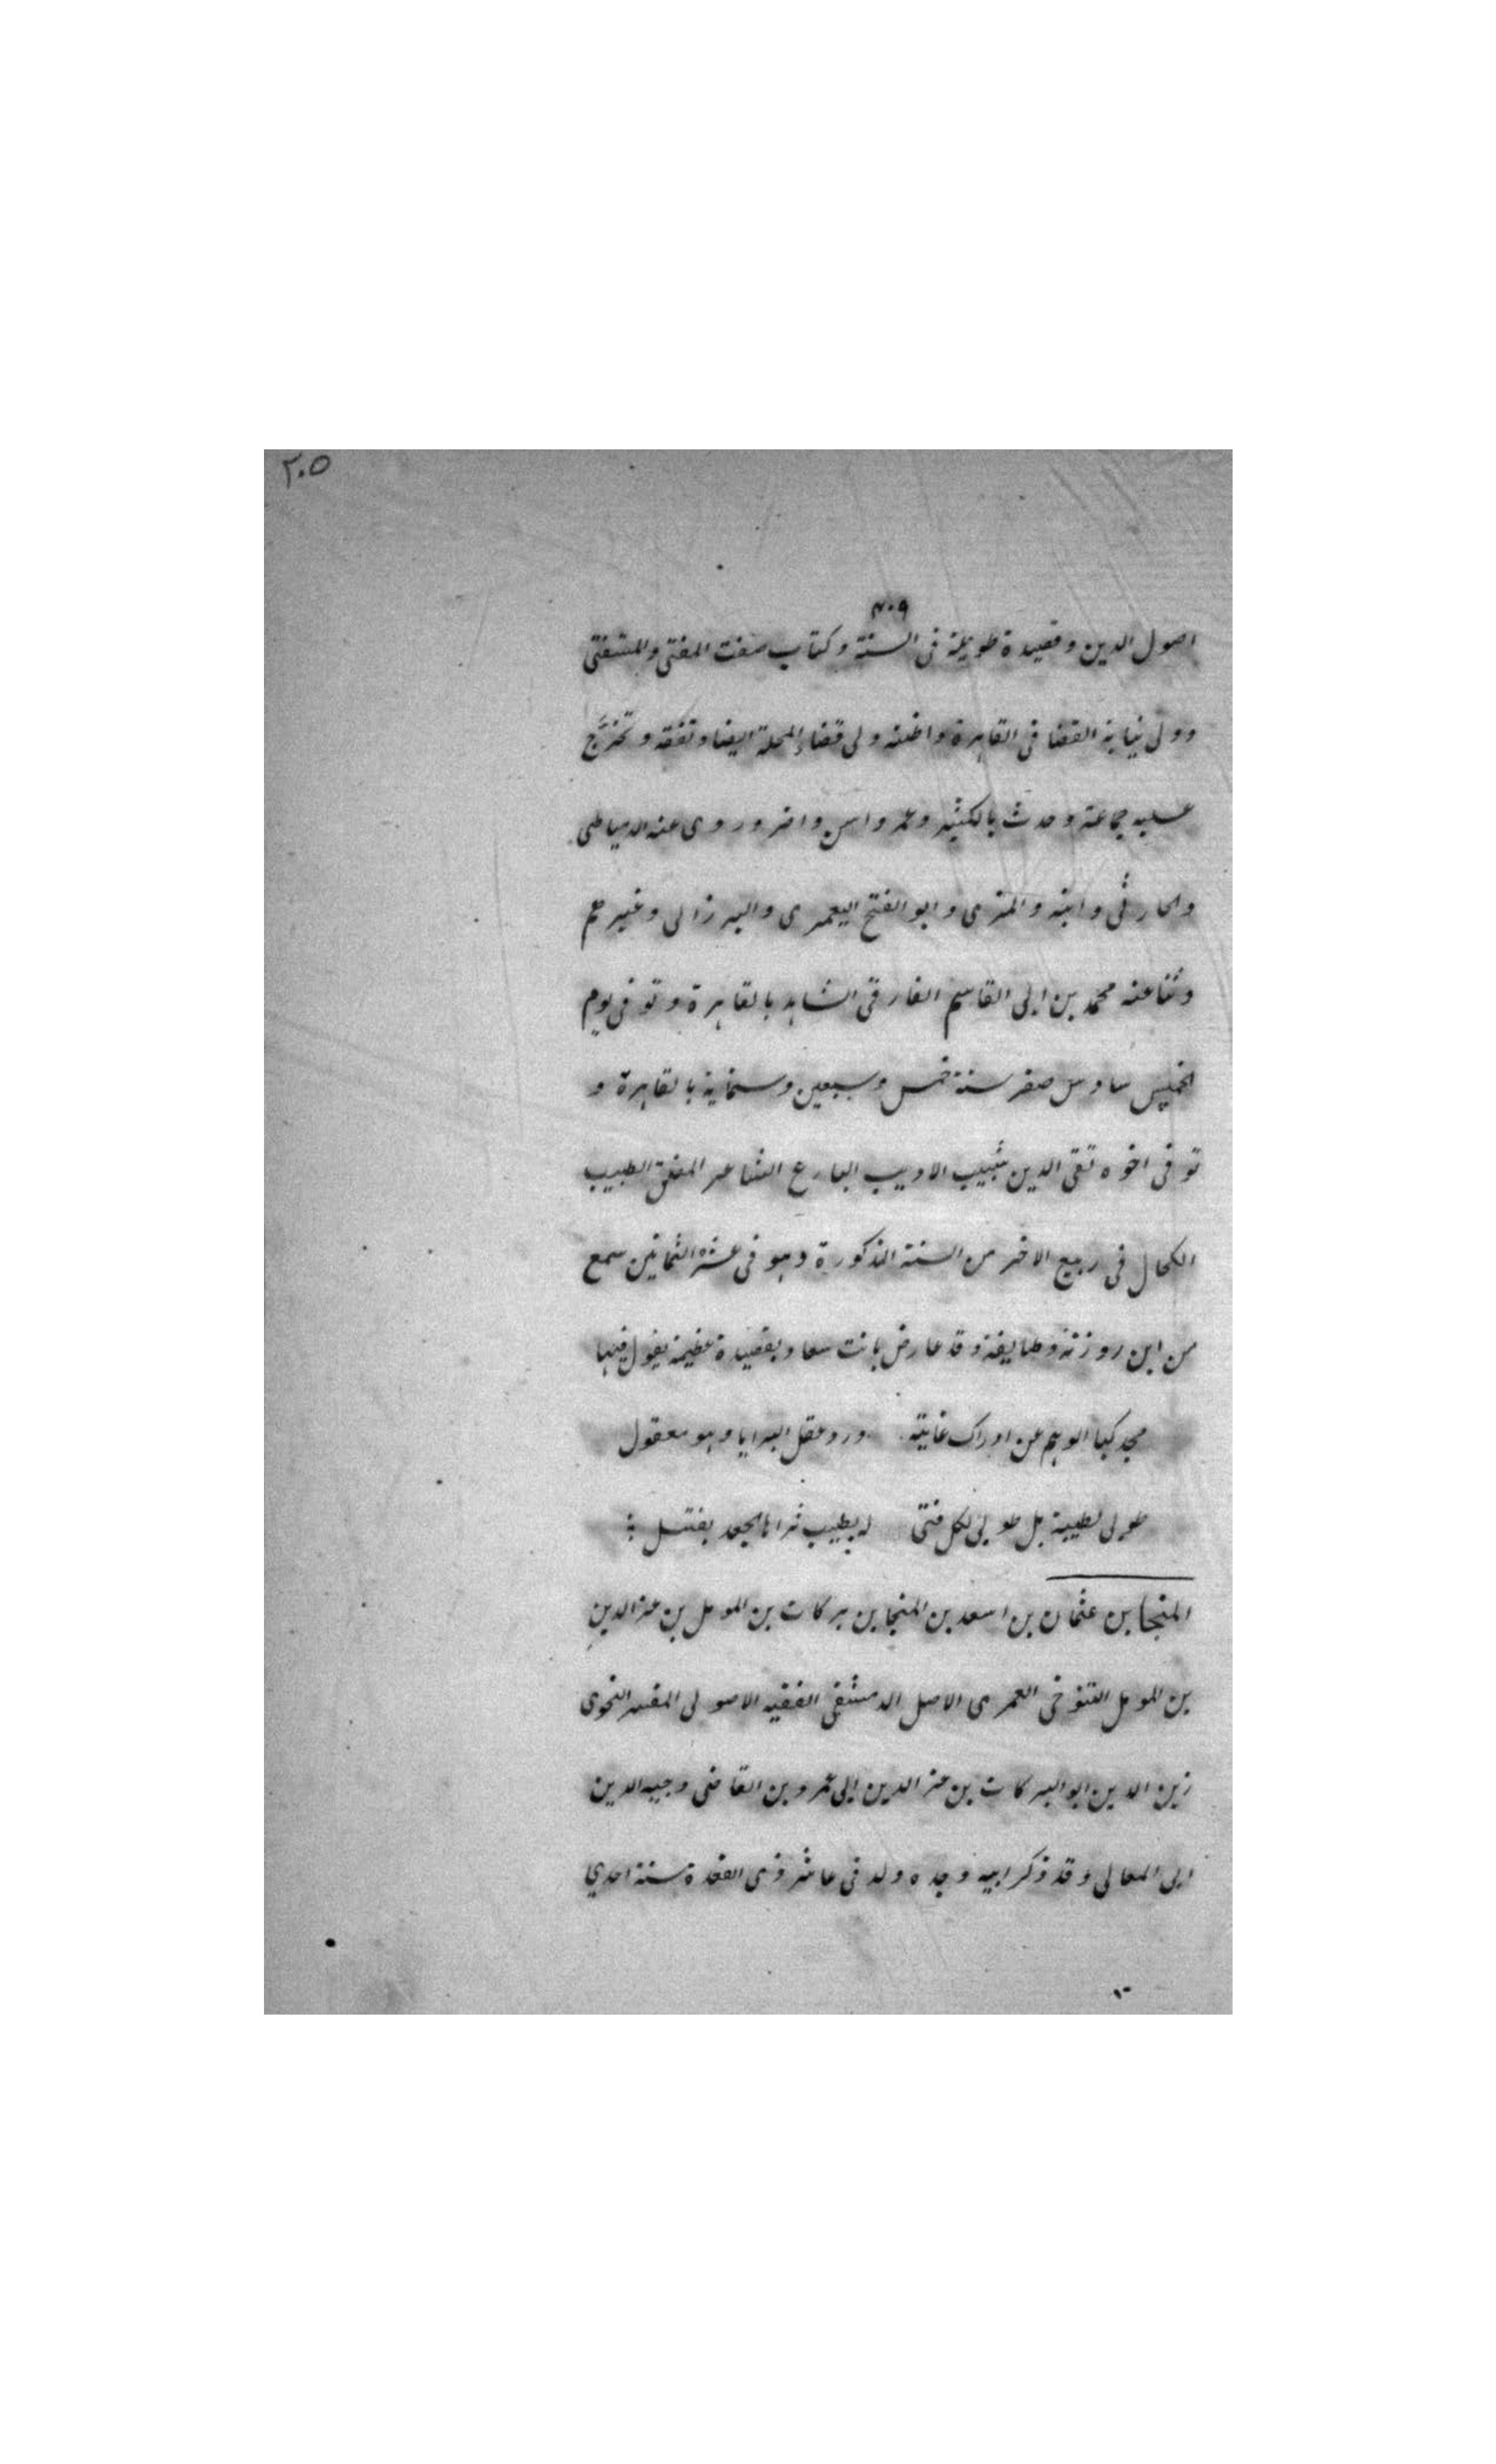 ٢٠٥
٤٠٩
اصول الدين وقصيدة طويلة فى السنة وكتاب صفت المفتى والمستفتى
وولى نيابة القضا فى القاهرة واظنه ولى قضاء المحلة ايضا وتفقه وتخرّج
عليه جماعة وحدث بالكثير وعمر واسن واضر وروى عنه الدمياطى
والحارثى وابنه والمزى وابو الفتح اليعمرى والبرزالى وغيرهم
وثنا عنه محمد بن ابى القاسم الفارقى الشاهد بالقاهرة وتوفى يوم
الخميس سادس صفر سنة خمس وسبعين وستماية بالقاهرة و
توفى اخوه تقى الدين شبيب الاديب البارع الشاعر المفلق الطبيب
الكحال فى ربيع الاخر من السنة المذكورة وهو فى عشر الثمانين سمع
من ابن روزنة وطايفة وقد عارض بانت سعاد بقصيدة عظيمة يقول فيها
مجد كبا الوهم عن ادراك غايته ورد عقل البرايا وهو معقول
طوبى لطيبة بل طوبى لكل فتى له بطيب ثراها الجعد
المنجا بن عثمان بن اسعد بن المنجا بن بركات بن المومل بن عز الدين
بن المومل التنوخى العمرى الاصل الدمشقى الفقيه الاصولى المفسر النحوى
زين الدين ابو البركات بن عز الدين ابى عمرو بن القاضى وجيه الدين
ابى المعالى وقد ذكر ابيه وجده ولد فى عاشر ذى القعدة سنة احدي